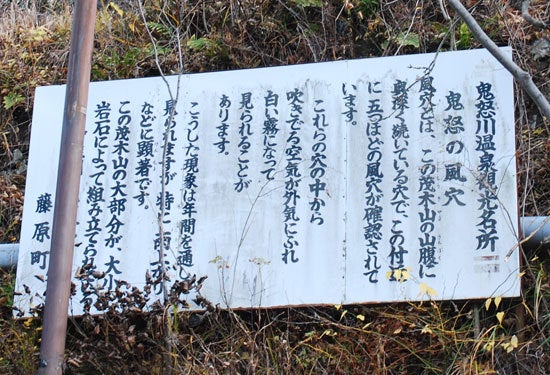 鬼怒川温泉観光名所
鬼怒の風穴
風穴とは、この茂木山の山腹に
奥深く続いている穴で、この付近
に五つほどの風穴が確認されて
います。
これらの穴の中から
吹きでる空気が外気にふれ
白い霧になって
見られることが
あります。
こうした現象は年間を通し
見られますが特に雨
などに顕著です。
この茂木山の大部分が、大小
岩石によって組み立てられ
藤原町